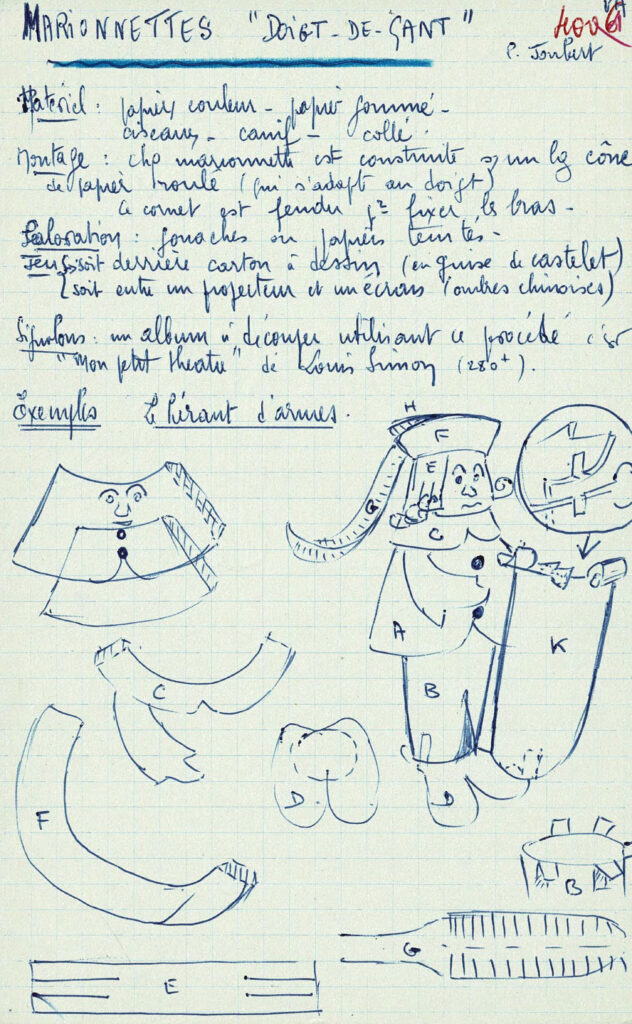 MARIONNETTES "DOIGT-DE-GANT"
P. Joubert
Matériel : papiers couleur - papier gommé -
ciseaux - canif - colle.
Montage : chq marionnette est construite sr un lg cône
de papier roulé (qui s'adapte au doigt)
Ce cornet est fendu pr fixer les bras -
Décoration : gouaches ou papiers teintés -
Jeu { soit derrière carton à dessin (en guise de castelet)
{ soit entre un projecteur et un écran (ombres chinoises)
Signalons : un album à découper utilisant ce procédé c'est
"Mon petit theatre" de Louis Simon (280+).
Exemples Le héraut d'armes.
H
F
E
G
G
C
A
B
K
D
C
D
F
B
G
E